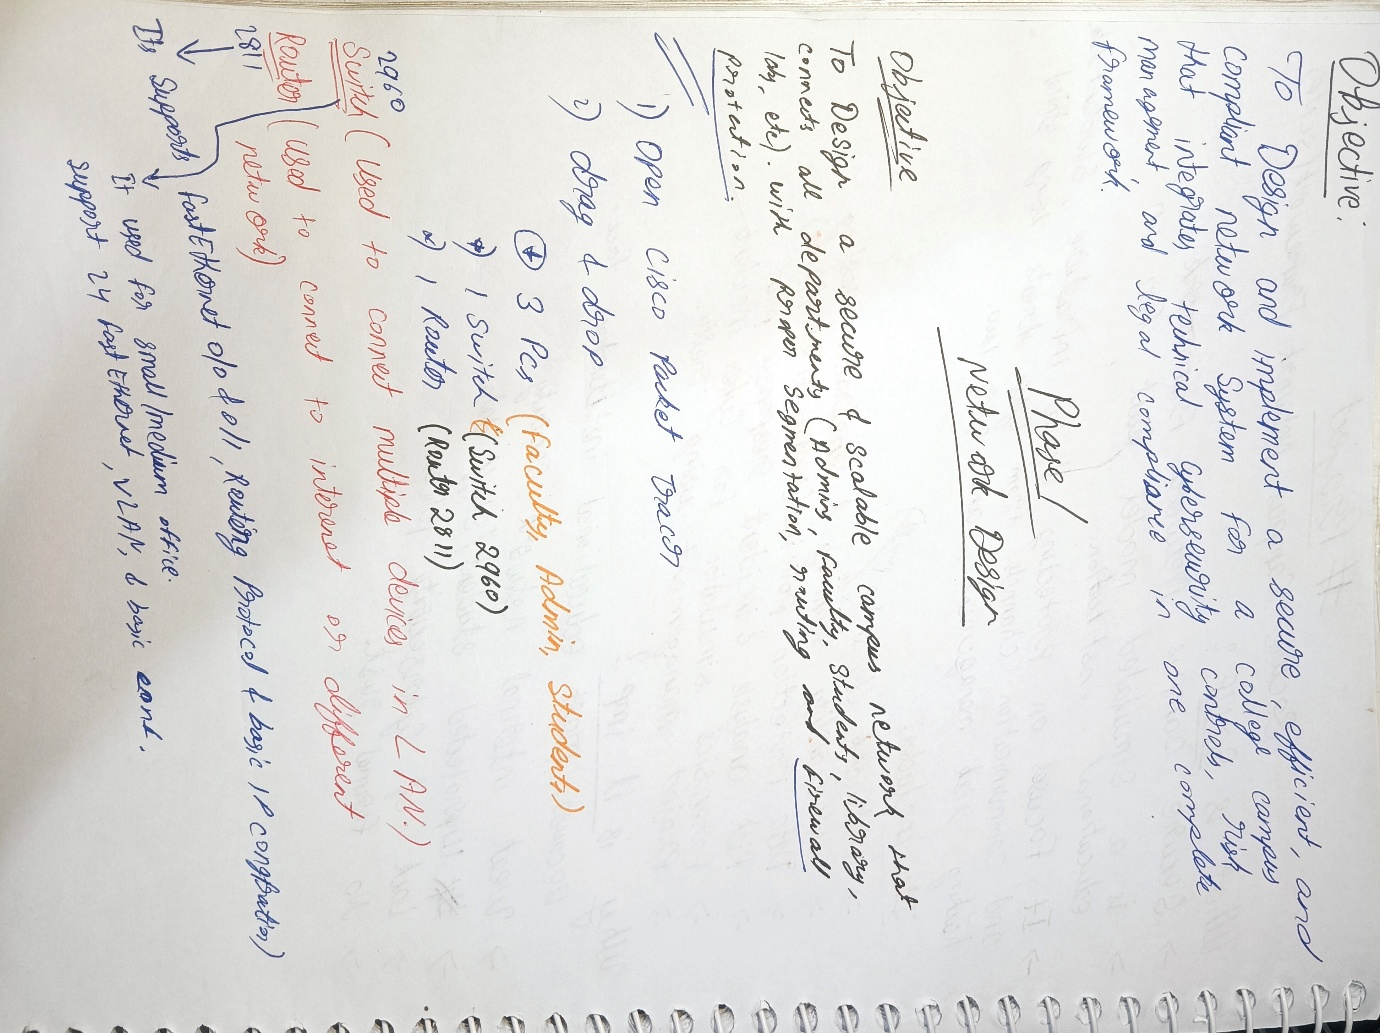 Objective:
To Design and implement a secure, efficient, and
compliant network System for a college campus
that integrates technical Cyberseurity controls, risk
management, and legal compliance in one complete
framework.
Phase 1
Network Design
Objective
To Design a secure & scalable campus network that
connects all departments (Admins, Faculty, Students, library,
lab, etc). with proper segmentation, routing and firewall
protection.
1) Open Cisco Packet Tracer
2) drag & drop
* 3 Pcs (Faculty, Admin, Students)
*) 1 Switch (Switch 2960)
*) 1 Router (Router 2811)
2960
Switch (Used to connect multiple devices in LAN.)
Router (used to connect to internet or different
network)
2811
Its Supports fastEthernet 0/0 & 0/1, Routing Protocol & basic IP
It used for small/medium office.
support 24 fastEthernet, VLAN, & basic